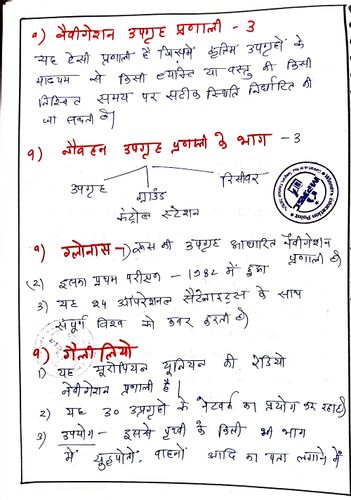 १) नेवीगेशन उपग्रह प्रणाली - 3
यह ऐसी प्रणाली है जिसमें कृत्रिम उपग्रहों के
माध्यम से किसी व्यक्ति या वस्तु की किसी
निश्चित समय पर सटीक स्थिति निर्धारित की
जा सकती है।
१) नौवहन उपग्रह प्रणाली के भाग - 3
उपग्रह ग्राउंड रिसीवर
कंट्रोल स्टेशन
१) ग्लोनास - रूस की उपग्रह आधारित नेवीगेशन
प्रणाली है।
(2) इसका प्रथम परीक्षण - 1982 में हुआ
3) यह 24 ऑपरेशनल सैटेलाइट्स के साथ
संपूर्ण विश्व को कवर करती है।
१) गैलीलियो
1) यह यूरोपियन यूनियन की रेडियो
नेवीगेशन प्रणाली है।
2) यह 30 उपग्रहों के नेटवर्क का प्रयोग कर रहा है।
3) उपयोग - इससे पृथ्वी के किसी भी भाग
में युद्धपोतों, वाहनों आदि का पता लगाने में